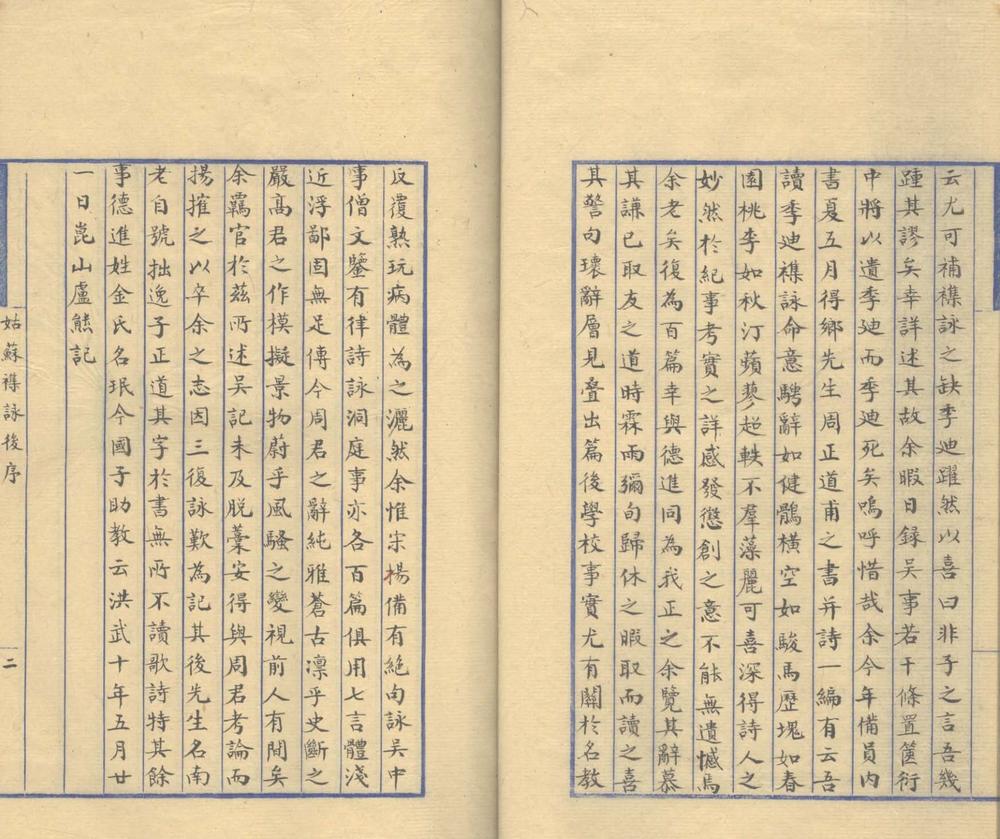 云尤可補襍詠之缺季迪躍然以喜曰非子之言吾幾
踵其謬矣幸詳述其故余暇日錄吴事若干條置篋衍
中將以遺季迪而季迪死矣嗚呼惜哉余今年備員内
書夏五月得鄉先生周正道甫之書并詩一編有云吾
讀季迪襍詠命意騁辭如健鶻橫空如駿馬歷塊如春
園桃李如秋汀蘋蓼超軼不羣藻麗可喜深得詩人之
妙然於紀事考實之詳感發懲創之意不能無遺憾焉
余老矣復為百篇幸與德進同為我正之余覽其辭慕
其謙已取友之道時霖雨彌旬歸休之暇取而讀之喜
其警句瓌辭層見疊出篇後學校事實尤有關於名教
反覆熟玩病體為之灑然余惟宋楊備有絶句詠吴中
事僧文鑒有律詩詠洞庭事亦各百篇俱用七言體淺
近浮鄙固無足傳今周君之辭純雅蒼古凛乎史斷之
嚴高君之作模擬景物蔚乎風騷之變視前人有間矣
余羈官於兹所述吴記未及脱藁安得與周君考論而
揚搉之以卒余之志因三復詠歎為記其後先生名南
老自號拙逸子正道其字於書無所不讀歌詩特其餘
事德進姓金氏名珉今國子助教云洪武十年五月廿
一日崑山盧熊記
姑蘇襍詠後序
二